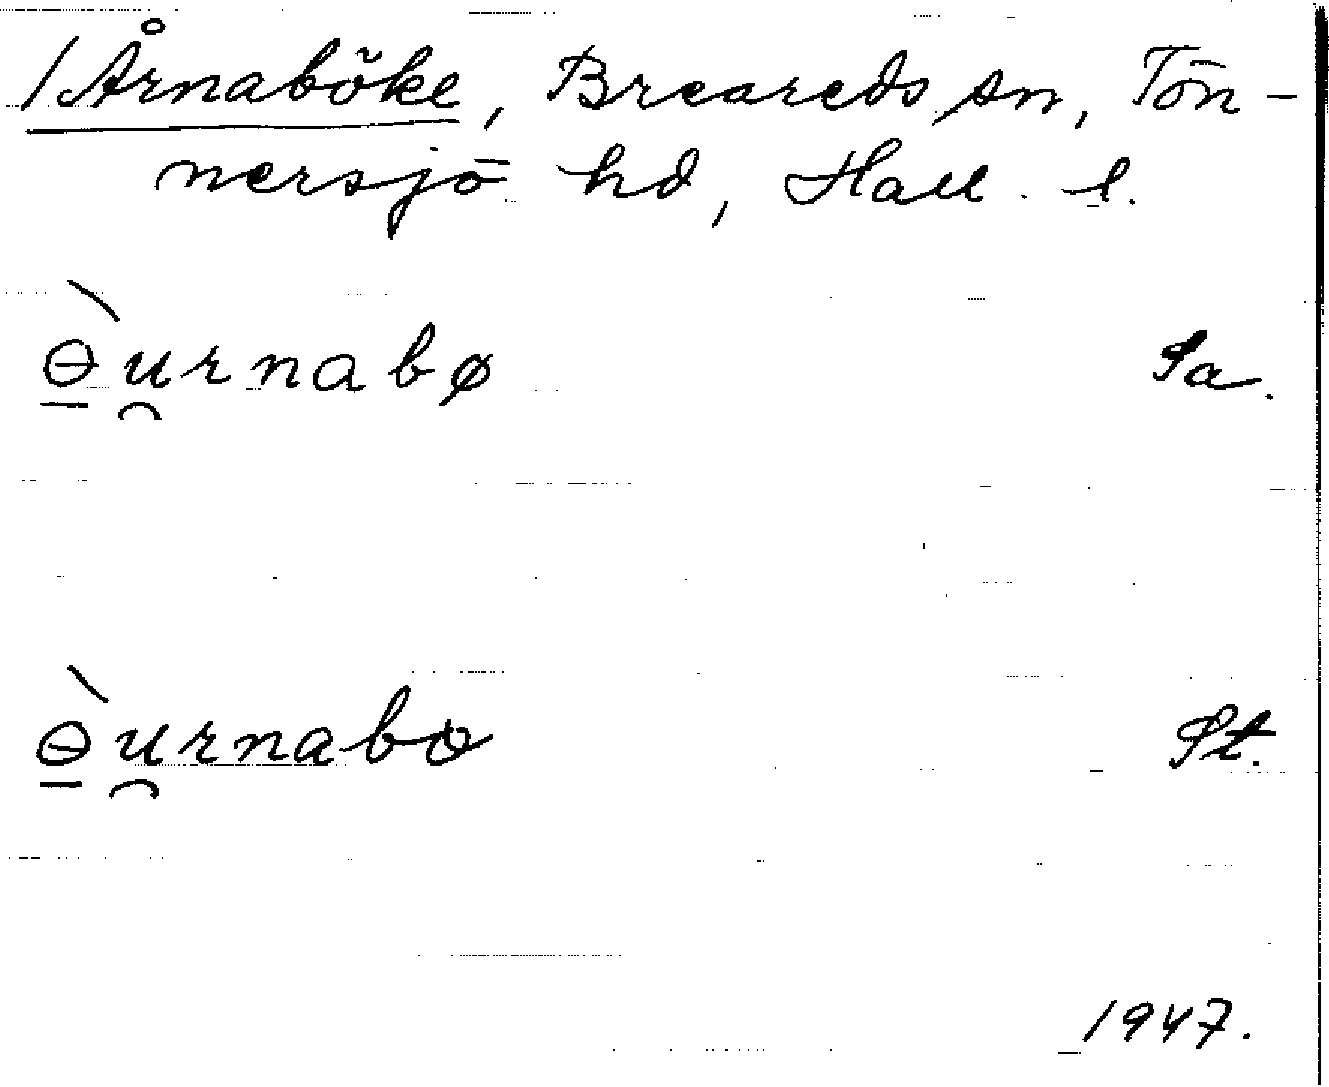 /Årnaböke, Breareds sn, Tön-
nersjö hd, Hall. l.
ɵ̱̀u̯rnabø Sa.
ɵ̱̀u̯rnabo St.
1947.